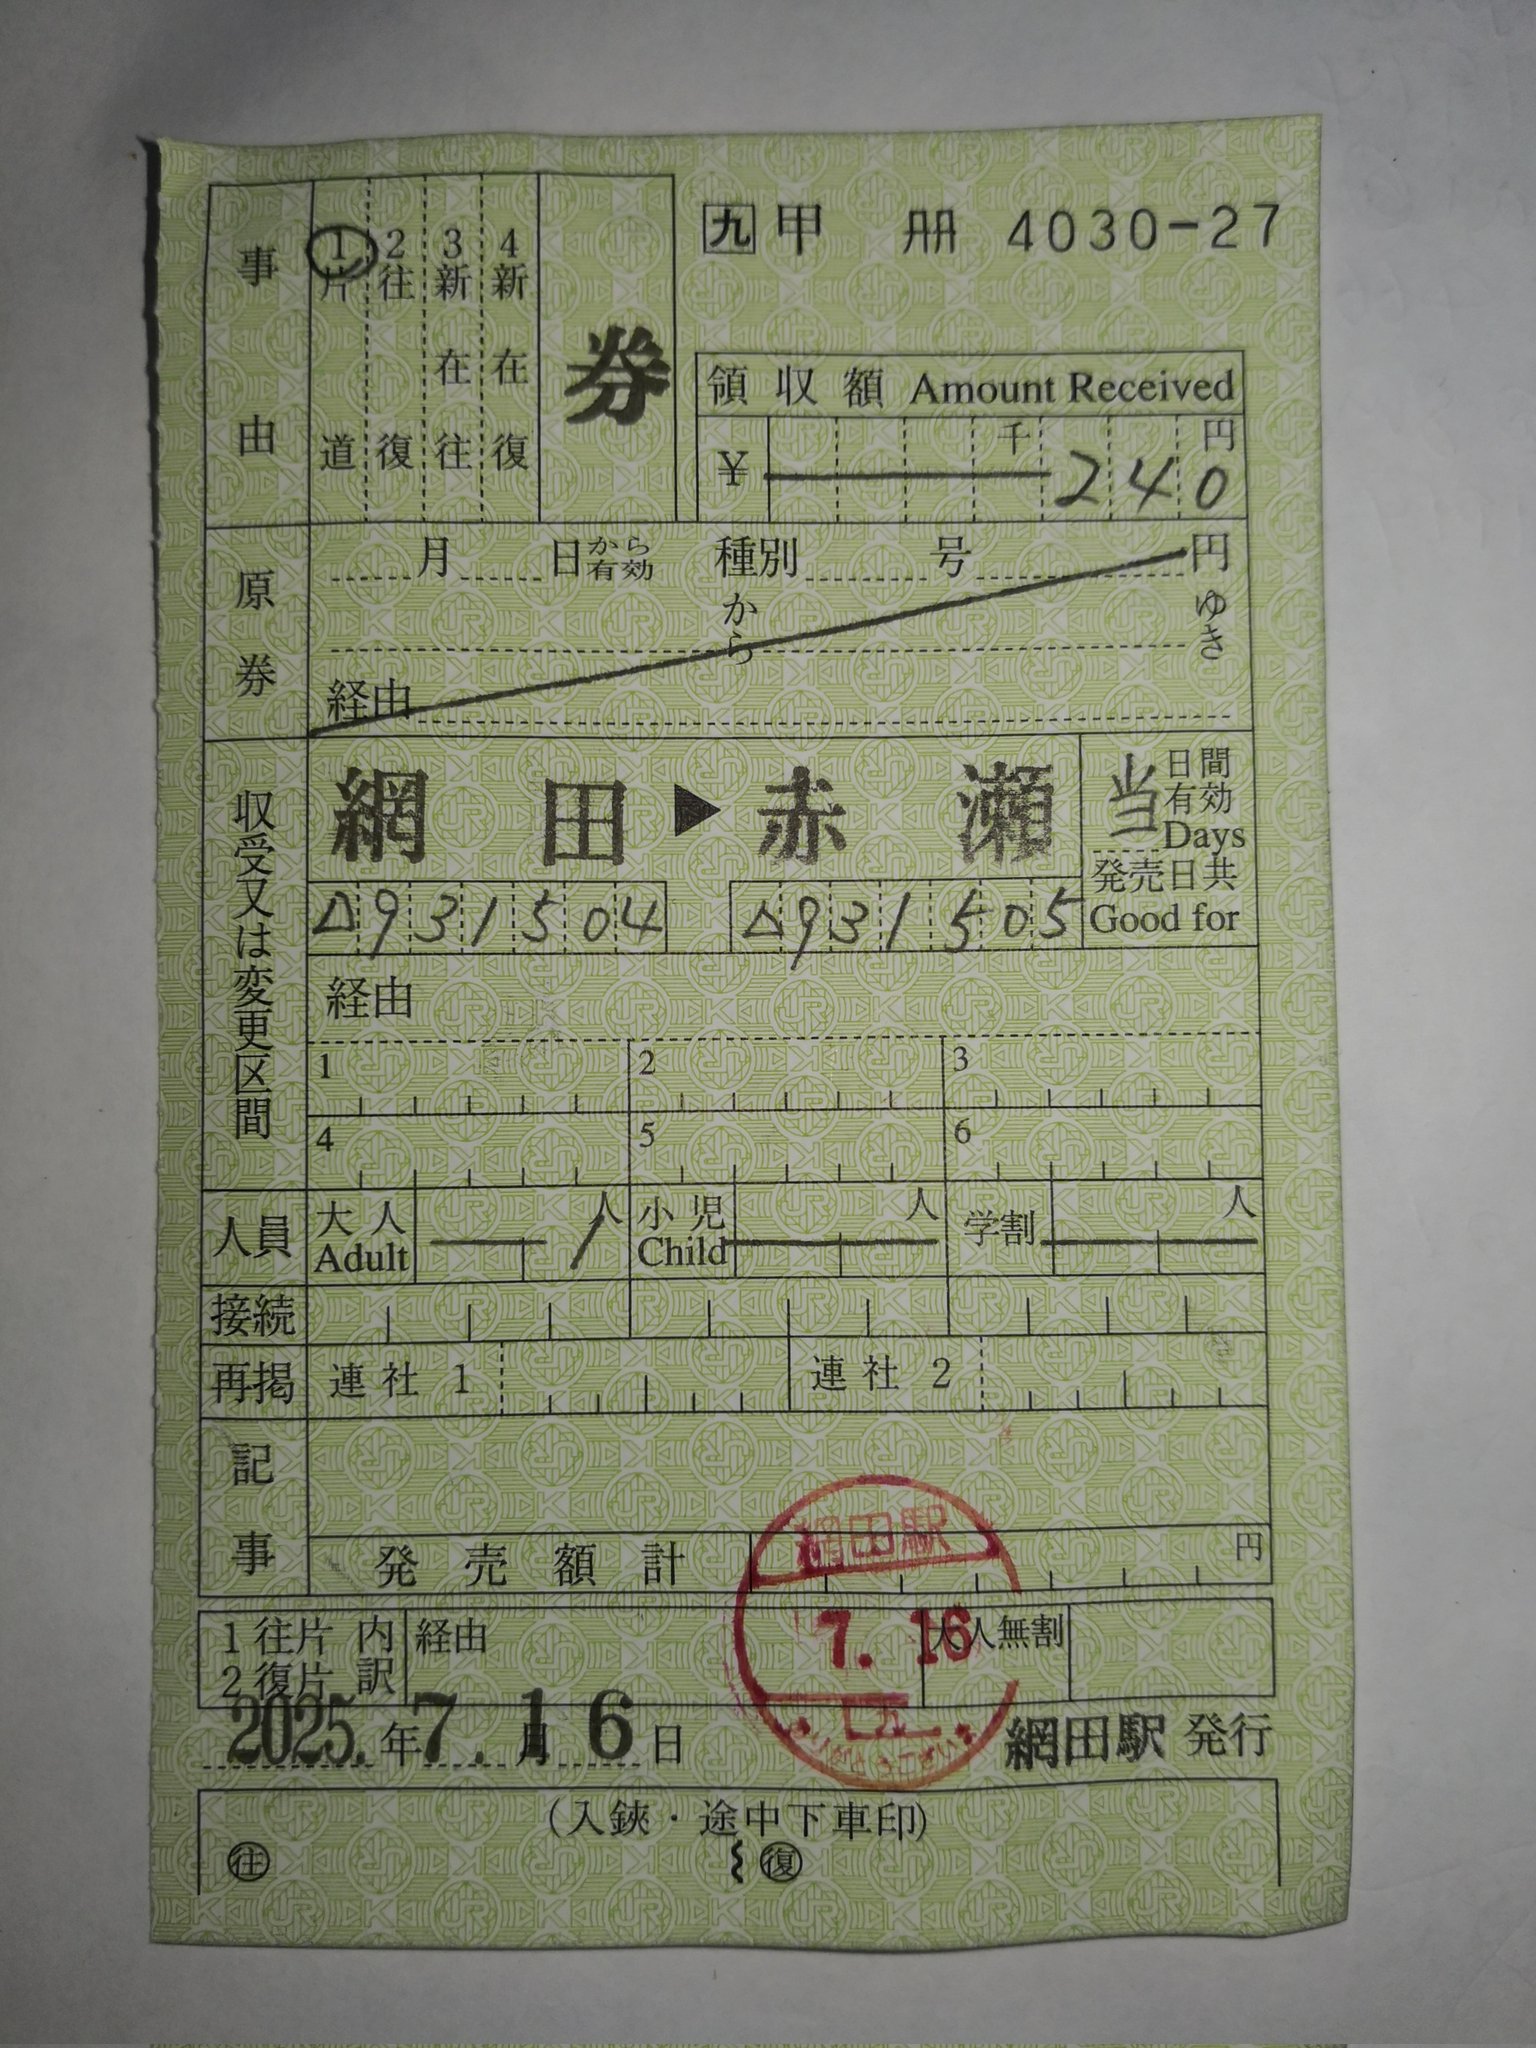 九 甲 冊 4030-27
事由 1片道 2往復 3新在往 4新在復 券
領収額 Amount Received
¥ 千 240 円
原券 月 日から有効 種別 号 円
から ゆき
経由
収受又は変更区間 網田▶赤瀬 当日間有効 Days
発売日共 Good for
△931504 △931505
経由
1 2 3
4 5 6
人員 大人 Adult 1人 小児 Child 人 学割 人
接続
再掲 連社 1 連社 2
記事
発売額計 円
網田駅
7.16
1往片 2復片 内訳 経由 大人無割
2025.年7.月16日 網田駅 発行
(入鋏・途中下車印)
往 復